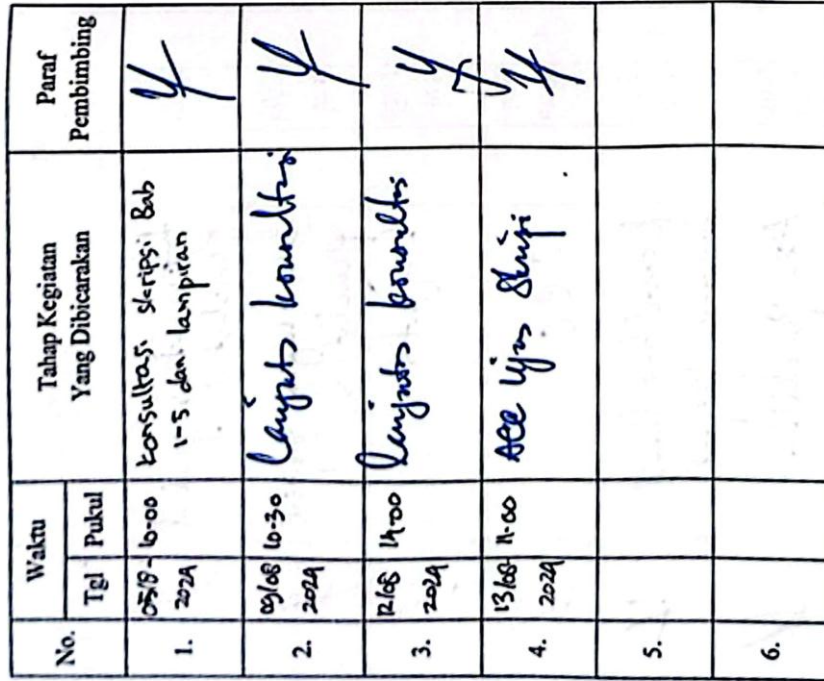 No.
Waktu
Tahap Kegiatan
Yang Dibicarakan
Paraf
Pembimbing
Tgl
Pukul
1.
2024
10-00
konsultasi skripsi Bab
1-5 dan lampiran
2.
09/08
2024
10-30
Lanjut konsultasi
3.
12/08
2024
14-00
Lanjut konsultasi
4.
13/08
2024
11-00
Acc Ujian Skripsi
5.
6.